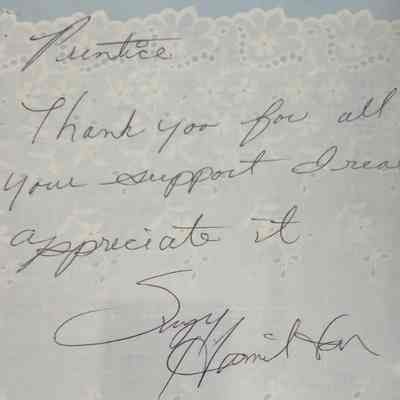 Prentice
Thank you for all
your support I rea
appreciate it
Suzy
Hamilton